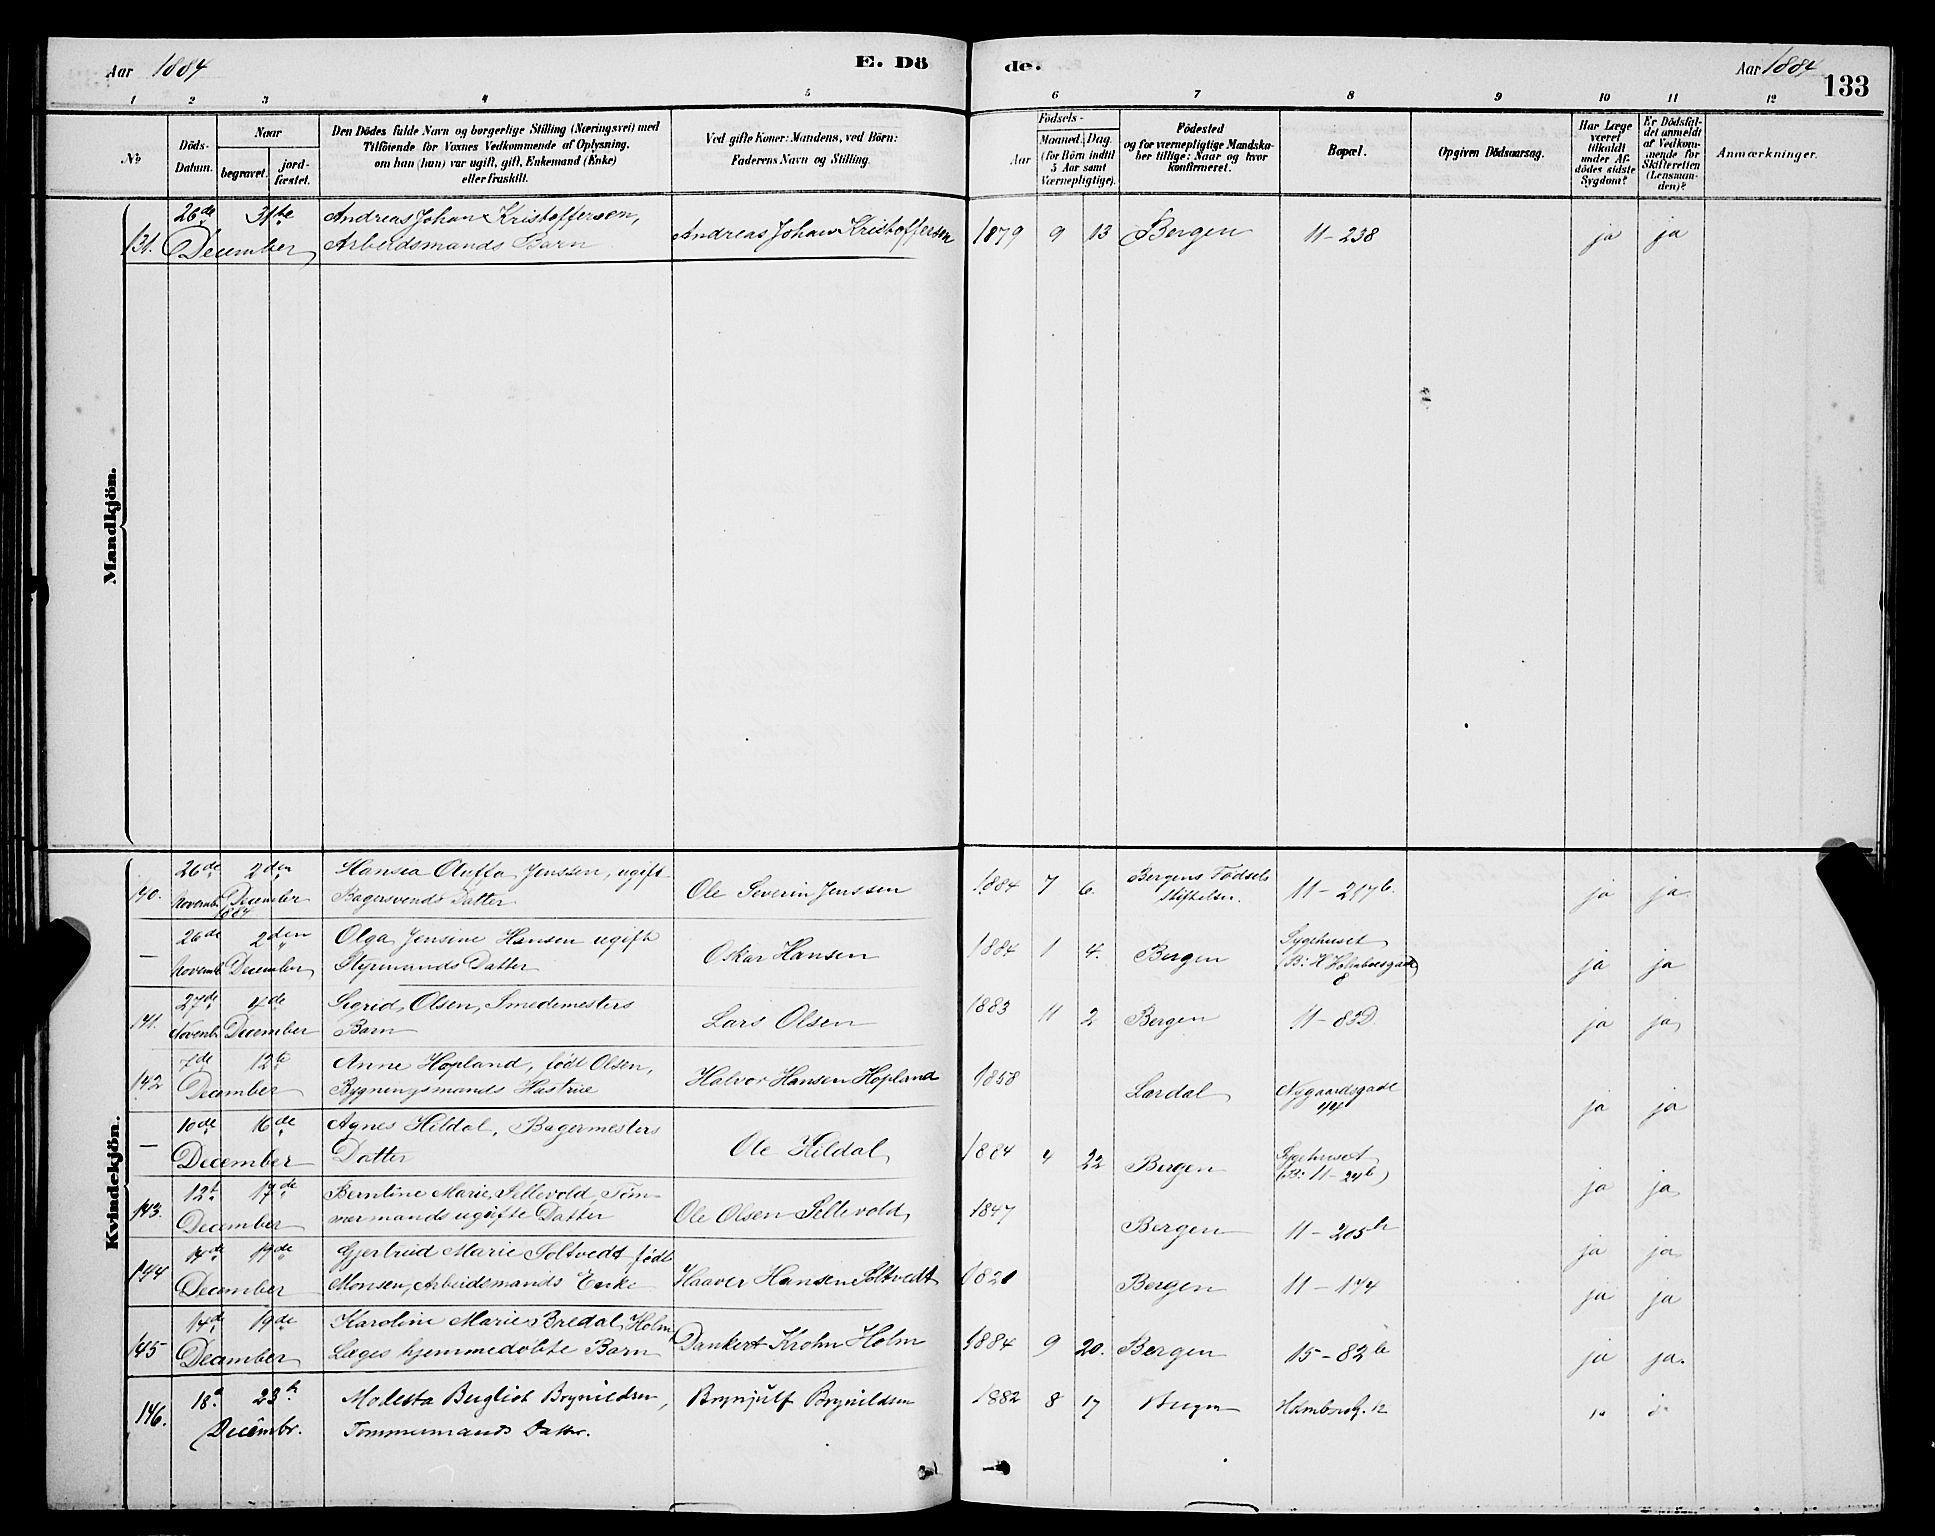 Aar 1884 E. Dö
de. Aar 1884 133
1 2 3 4 5 6 7 8 9 10 11 12
No
Döds-Datum.
Naar
begravet. jordfæstet.
Den Dödes fulde Navn og borgerlige Stilling (Næringsvei) med
Tilföiende for Voxnes Vedkommende af Oplysning,
om han (hun) var ugift, gift, Enkemand (Enke)
eller fraskilt.
Ved gifte Koner: Mandens, ved Börn:
Faderens Navn og Stilling.
Födsels-
Aar
Maaned. Dag.
(for Börn indtil
5 Aar samt
Værnepligtige).
Födested
og for værnepligtige Mandskaber tillige: Naar og hvor
konfirmeret.
Bopæl.
Opgiven Dödsaarsag.
Har Læge
været
tilkaldt
under Afdödes sidste
Sygdom?
Er Dödsfaldet anmeldt
af Vedkommende for
Skifteretten
(Lensmanden)?
Anmærkninger.
Mandkjön.
131. 26de December 31te Andreas Johan Kristoffersen, Andreas Johan Kristoffersen 1879 9 13 Bergen 11-238 ja ja
Arbeidsmands Barn
Kvindekjön.
140. 26de Novemb. 2den December 1884 Hansea Oluffa Jenssen, ugift Ole Severin Jenssen 1884 7 6. Bergens Födsels 11-217b. ja ja.
Bagersvends Datter Stiftelse.
— 26de Novemb. 2den December Olga Jensine Hansen ugift Oskar Hansen 1884 1 4. Bergen Sygehuset ja ja
Styrmands Datter 8
141. 27de Novemb. 4de December Sigrid Olsen, Smedemesters Lars Olsen 1883 11 2 Bergen 11-85D. ja ja
Barn
142 7de 12te December Anne Hopland, födt Olsen, Halvor Hansen Hopland 1858 Lærdal Nygaardsgade 44 ja ja
Bygningsmands Hustrue
— 10de 16de December Agnes Hildal, Bagermesters Ole Hildal 1884 4 22 Bergen Sygehuset ja ja
Datter (B: 11-24b)
143. 12t 17de December Berntine Marie Sellevold, Töm- Ole Olsen Sellevold, 1847 Bergen 11-205b ja ja
mermands ugifte Datter
144 14de 19de December Gjertrud Marie Soltvedt födt Haaver Hansen Soltvedt 1821 Bergen 11-144 ja ja
Monsen, Arbeidsmands Enke
145 14de 19de December Karoline Marie Bredal Holm, Dankert Krohn Holm 1884 9 20. Bergen 15-82b ja ja.
Læges hjemmedöbte Barn
146. 18. 23 Decembr. Modesta Bergliot Brynildsen, Brynjulf Brynildsen 1882 8 17 Bergen 12
Tömmermands Datter.